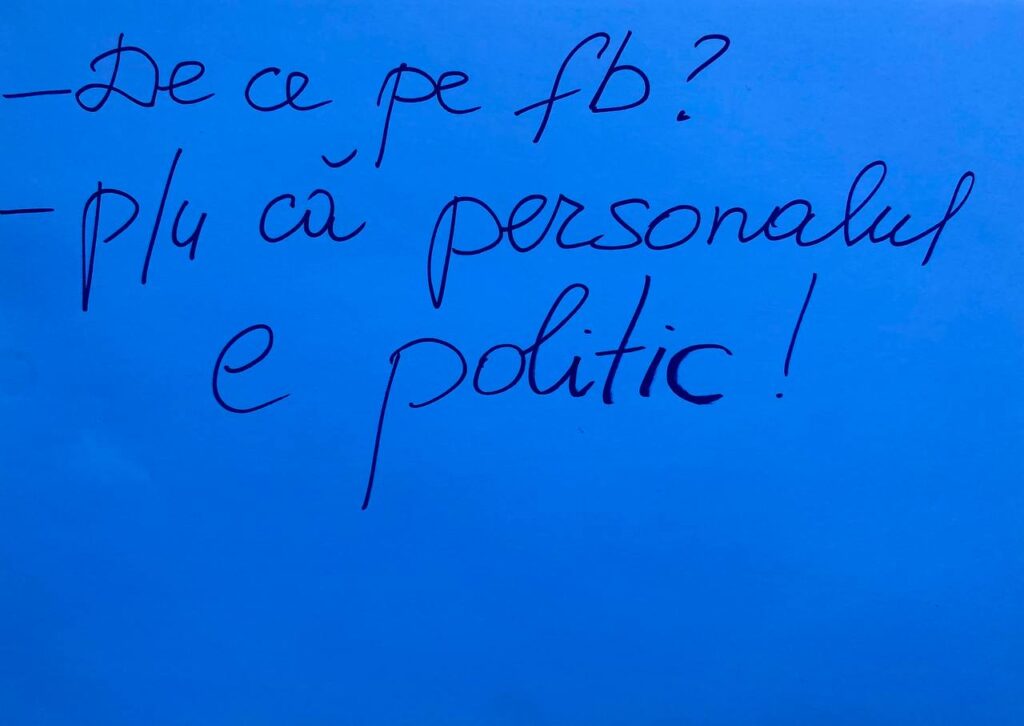 - De ce pe fb?
- p/u că personalul
e politic!